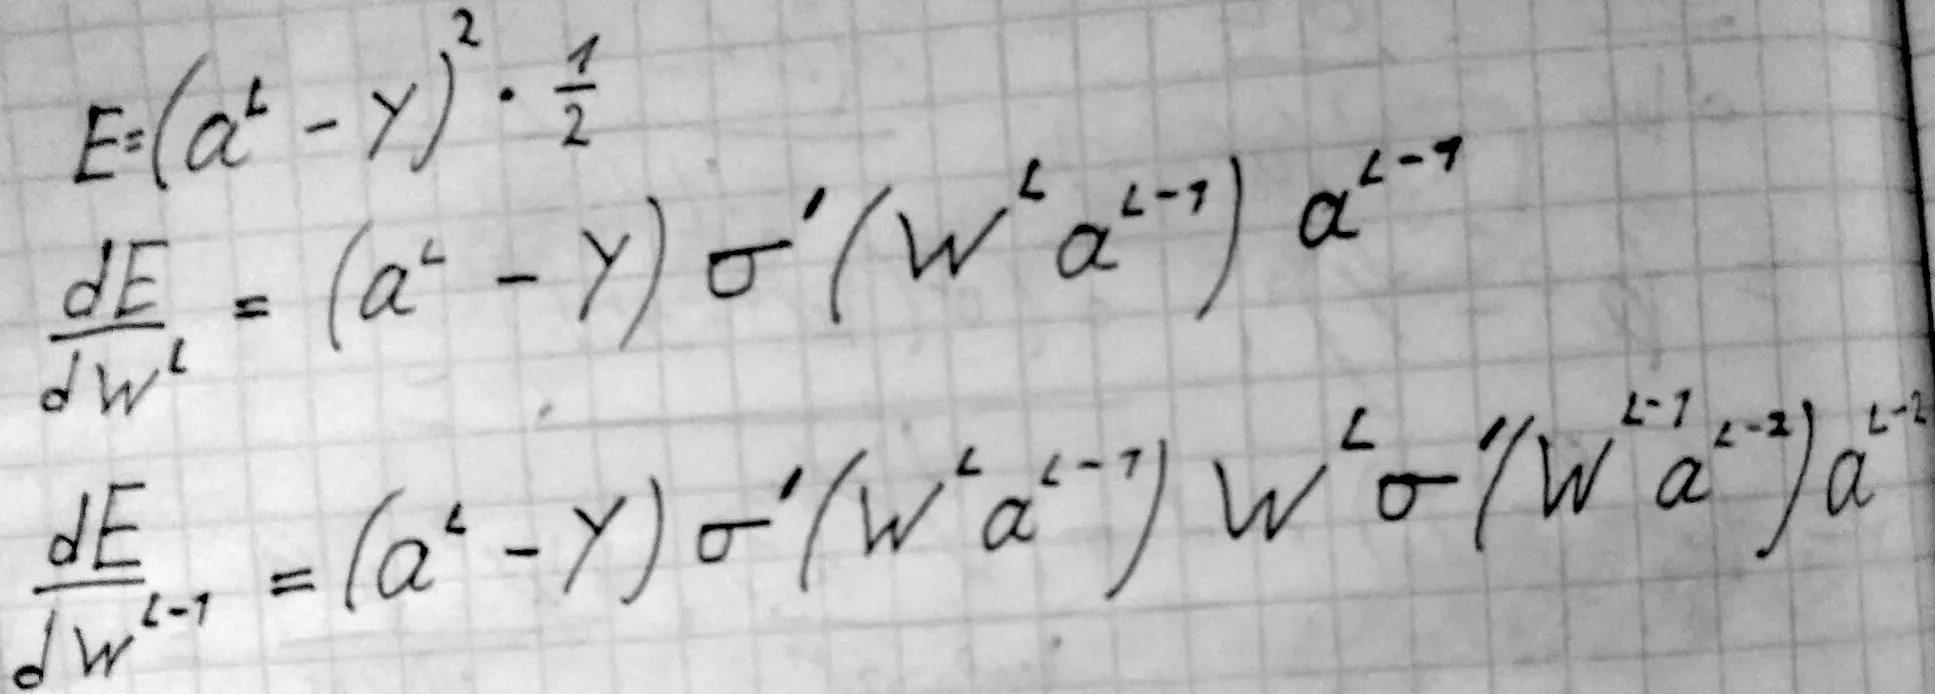 E=(a^L - Y)^2 · 1/2
dE/dW^L = (a^L - Y) σ'(W^L a^{L-1}) a^{L-1}
dE/dW^{L-1} = (a^L - Y) σ'(W^L a^{L-1}) W^L σ'(W^{L-1} a^{L-2}) a^{L-2}